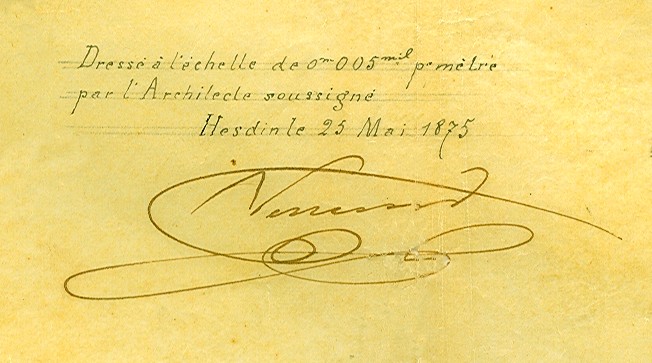 Dressé à l'échelle de 0m 005mil pr mètre
par l'Architecte soussigné
Hesdin le 25 Mai 1875